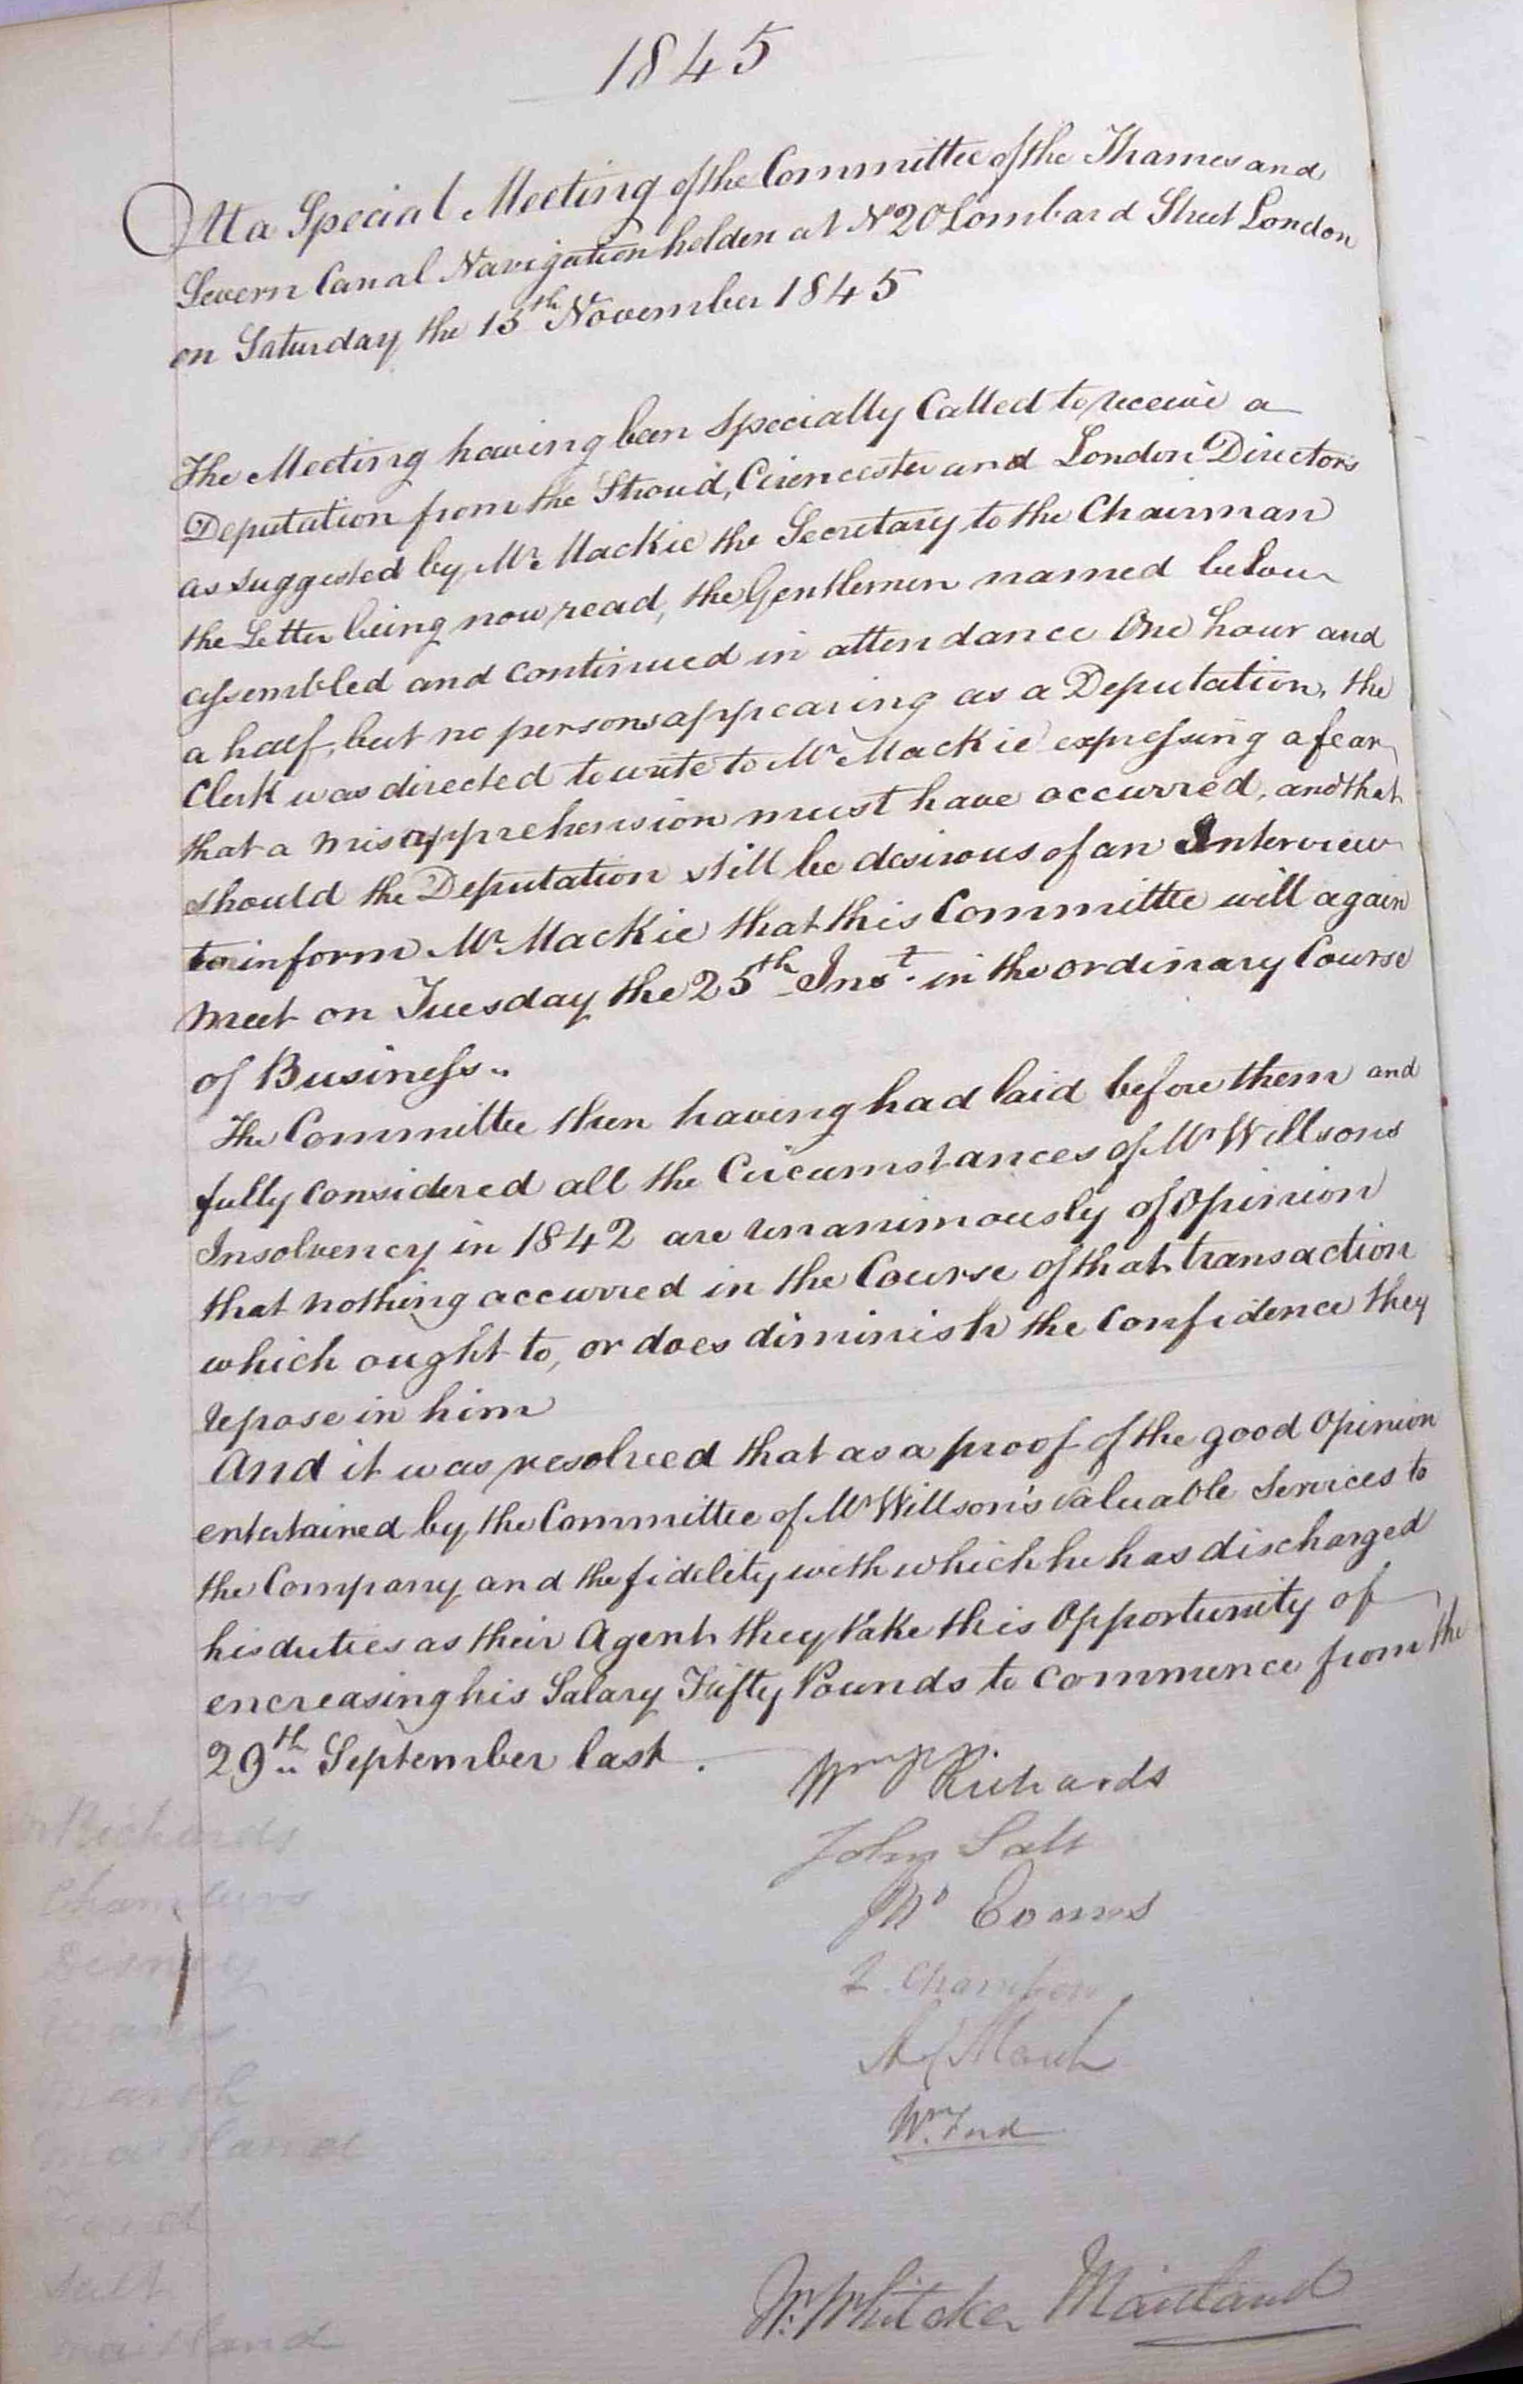 1845
At a Special Meeting of the Committee of the Thames and
Severn Canal Navigation holden at No 20 Lombard Street London
on Saturday the 15th November 1845
The Meeting having been Specially Called to receive a
Deputation from the Stroud, Cirencester and London Directors
as suggested by Mr Mackie the Secretary to the Chairman
the Letter being now read, the Gentlemen named below
assembled and continued in attendance One hour and
a half, but no persons appearing as a Deputation, the
Clerk was directed to write to Mr Mackie expressing a fear
that a misapprehension must have occurred, and that
should the Deputation still be desirous of an Interview
to inform Mr Mackie that this Committee will again
meet on Tuesday the 25th Inst. in the ordinary Course
of Business.
The Committee then having had laid before them and
fully considered all the Circumstances of Mr Willsons
Insolvency in 1842 are unanimously of Opinion
that nothing occurred in the Course of that transaction
which ought to, or does diminish the confidence they
repose in him
And it was resolved that as a proof of the good Opinion
entertained by the Committee of Mr Willson's valuable Services to
the Company and the fidelity with which he has discharged
his duties as their Agent they take this Opportunity of
encreasing his Salary Fifty Pounds to commence from the
29th September last.
Wm Richards
John Salt
Evans
Chambers
March
Wm Ford
Wm Whitaker Maitland
Richards
Chambers
Disney
Evans
March
Maitland
Ford
Salt
Maitland